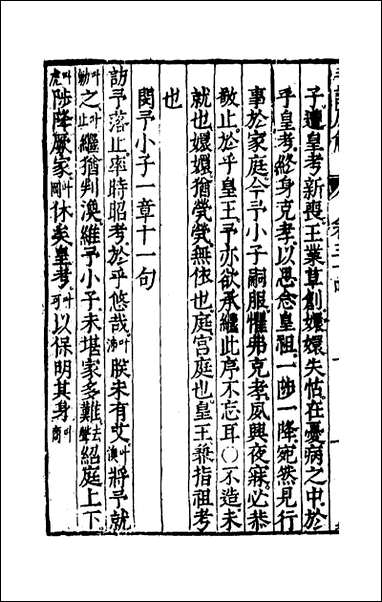 子遭皇考新喪王業草創嬛嬛失怙在憂病之中於
乎皇考終身克孝以思念皇祖一陟一降宛然見行
事於家庭今予小子嗣服懼弗克孝夙興夜寐必恭
敬止於乎皇王予亦欲承繼此序不忘耳○不造未
就也嬛嬛猶煢煢無依也庭宮庭也皇王兼指祖考
也
閔予小子一章十一句
訪予落止率時昭考於乎悠哉叶沛朕未有艾叶渙將予就
叶勑之叶止繼猶判渙維予小子未堪家多難去聲紹庭上下
叶虎陟降厥家叶剛休矣皇考叶可以保明其身叶商